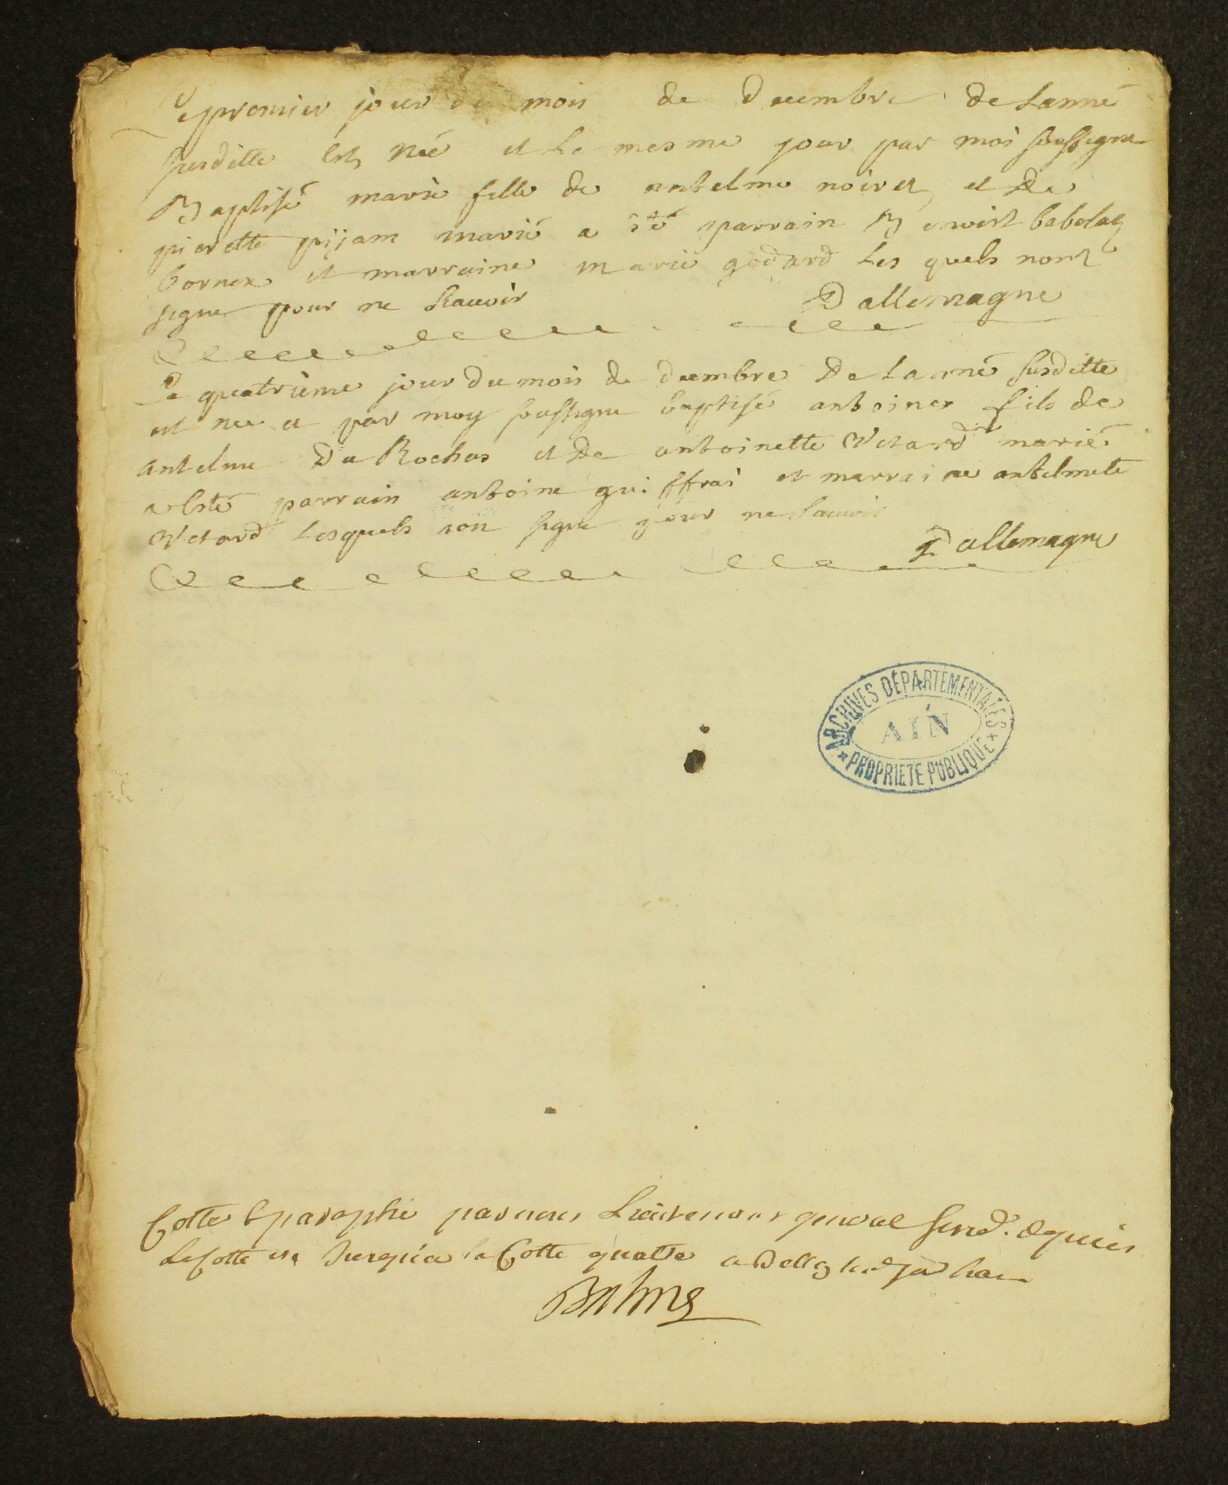 Le premier jour du mois de decembre de lanné
susditte est neé et le mesme jour par moi soussigne
Baptisé marie fille de antelme noiret et de
pierette pijam marié a été parrain Benoist babolat
bornex et marraine marie godard les quels nont
signe pour ne scauoir Dallemagne
Le quatrieme jour du mois de decembre De lanné susditte
est nee et par moy soussigne baptisé antoine fils de
antelme Du Rochas et De antoinette Vetard marié
a esté parrain antoine gui ffrai et marraine antelmete
Vetard lesquels non signe pour ne scauoir
Dallemagne
ARCHIVES DÉPARTEMENTALES
AIN
PROPRIÉTÉ PUBLIQUE
Cotte & paraphé par nous Lieutenant general depuis
la Cotte une Jusqu'a la Cotte quatre a Belley